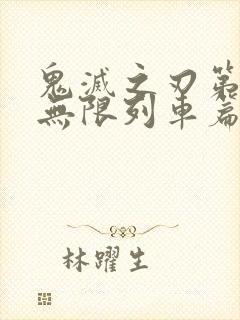 鬼滅之刃第
無限列車篇
林躍生